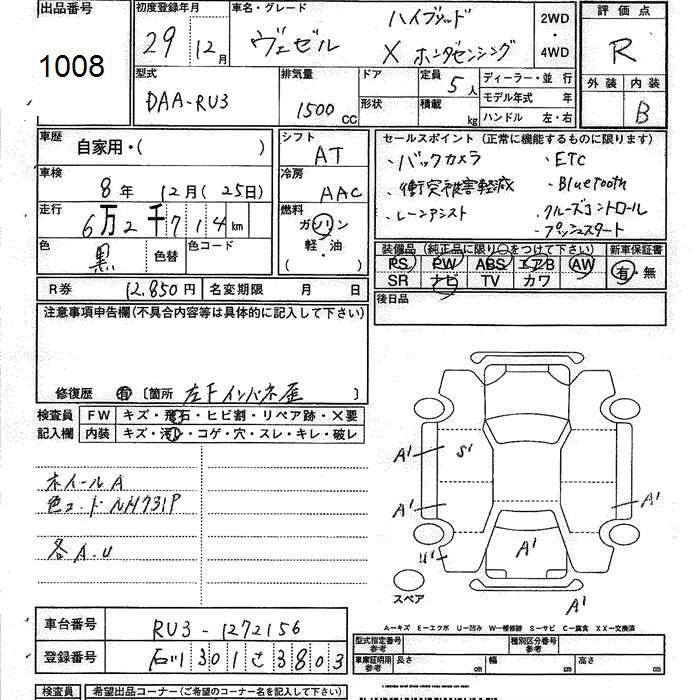 出品番号
1008
初度登録年月
29年12月
車名・グレード
ヴェゼル
ハイブリッド
X ホンダセンシング
2WD
・
4WD
評価点
R
外装 内装
B
型式
DAA-RU3
排気量
1500cc
ドア
形状
定員 5人
積載 kg
ディーラー・並行
モデル年式 年
ハンドル 左・右
車歴
自家用・( )
車検
8年 12月(25日)
走行
6万2千714km
色
黒
色替
色コード
シフト
AT
冷房
AAC
燃料
ガソリン
軽・油
( )
セールスポイント(正常に機能するものに限ります)
・バックカメラ ・ETC
・衝突被害軽減 ・Bluetooth
・レーンアシスト ・クルーズコントロール
・プッシュスタート
装備品(純正品に限り○をつけて下さい)
PS PW ABS エアB AW
SR ナビ TV カワ
新車保証書
有・無
後日品
R券 12,850円
名変期限 月 日
注意事項申告欄(不具合内容等は具体的に記入して下さい)
修復歴 有 〔箇所 左Fインパネ歪 〕
検査員
記入欄
FW キズ・飛石・ヒビ割・リペア跡・X要
内装 キズ・汚レ・コゲ・穴・スレ・キレ・破レ
ホイールA
色コードNH731P
各A.U
A' S'
A' A'
U' A'
スペア
A'
A―キズ E―エクボ U―凹み W―補修跡 S―サビ C―腐食 XX―交換済
車台番号
RU3-1272156
登録番号
石川301さ3803
型式指定番号
参考
種別区分番号
参考
車庫証明用
参考
長さ cm
幅 cm
高さ cm
検査員
希望出品コーナー(ご希望のコーナー名を記入下さい)